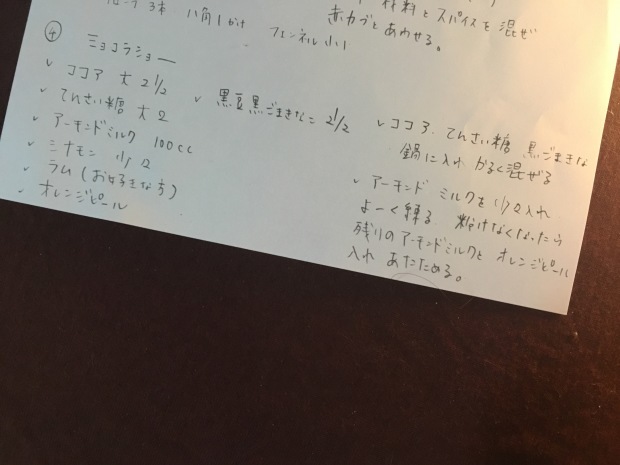 3本 八角1かけ フェンネル 小1
材料とスパイスを混ぜ
赤カブとあわせる。
④ ショコラショー
✓ ココア 大 2 1/2
✓ てんさい糖 大2
✓ アーモンドミルク 100cc
✓ シナモン 小2
✓ ラム(お好きな方)
✓ オレンジピール
✓ 黒豆黒ごまきなこ 2 1/2
✓ ココア、てんさい糖 黒ごまきな
鍋に入れ かるく混ぜる
✓ アーモンドミルクを少々入れ
よーく練る 粉けなくなったら
残りのアーモンドミルクと オレンジピール
入れ あたためる。